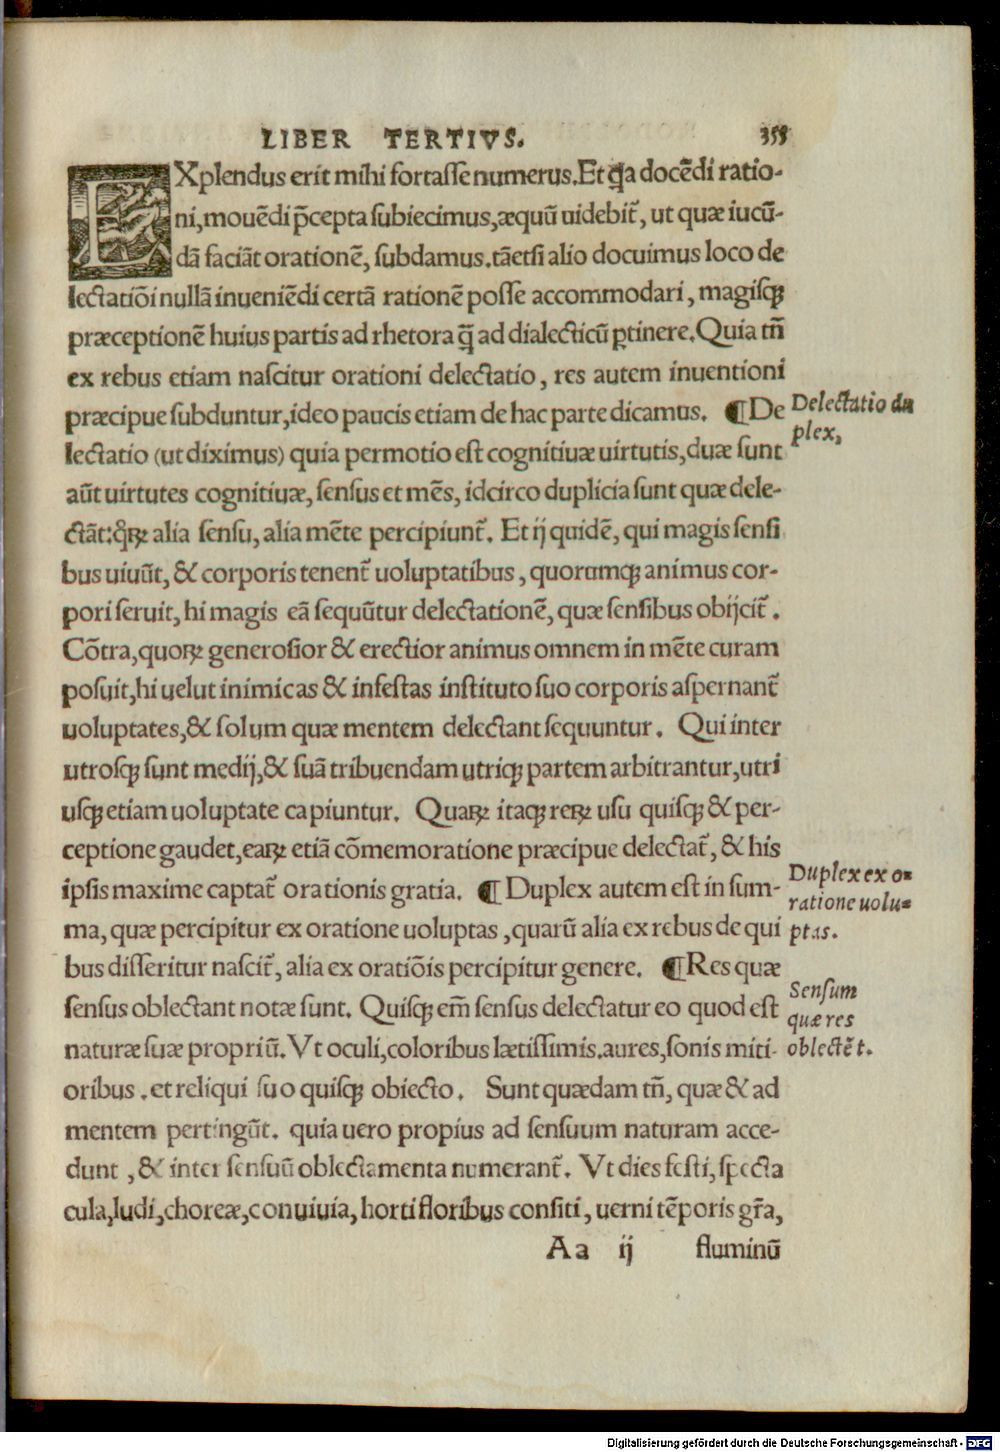 LIBER TERTIVS. 355
EXplendus erit mihi fortasse numerus. Et q̃a docẽdi ratio-
ni, mouẽdi p̃cepta subiecimus, æquũ uidebit̃, ut quæ iucũ-
dã faciãt orationẽ, subdamus. tãetsi alio docuimus loco de
lectatiõi nullã inueniẽdi certã rationẽ posse accommodari, magisq́;
præceptionẽ huius partis ad rhetora q̃ ad dialecticũ ꝑtinere. Quia tñ
ex rebus etiam nascitur orationi delectatio, res autem inuentioni
præcipue subduntur, ideo paucis etiam de hac parte dicamus. ¶ De
lectatio (ut diximus) quia permotio est cognitiuæ uirtutis, duæ sunt
aũt uirtutes cognitiuæ, sensus et mẽs, idcirco duplicia sunt quæ dele-
ctãt: q̃ꝝ alia sensu, alia mẽte percipiunt̃. Et ij quidẽ, qui magis sensi
bus uiuũt, & corporis tenent̃ uoluptatibus, quorumq; animus cor-
pori seruit, hi magis eã sequũtur delectationẽ, quæ sensibus obijcit̃.
Cõtra, quoꝝ generosior & erectior animus omnem in mẽte curam
posuit, hi uelut inimicas & infestas instituto suo corporis aspernant̃
uoluptates, & solum quæ mentem delectant sequuntur. Qui inter
utrosq; sunt medij, & suã tribuendam utriq; partem arbitrantur, utri
usq; etiam uoluptate capiuntur. Quaꝝ itaq; reꝝ usu quisq; & per-
ceptione gaudet, eaꝝ etiã cõmemoratione præcipue delectat̃, & his
ipsis maxime captat̃ orationis gratia. ¶ Duplex autem est in sum-
ma, quæ percipitur ex oratione uoluptas, quarũ alia ex rebus de qui
bus disseritur nascit̃, alia ex oratiõis percipitur genere. ¶ Res quæ
sensus oblectant notæ sunt. Quisq; em̃ sensus delectatur eo quod est
naturæ suæ propriũ. Vt oculi, coloribus lætissimis. aures, sonis miti-
oribus. et reliqui suo quisq; obiecto. Sunt quædam tñ, quæ & ad
mentem pertingũt. quia uero propius ad sensuum naturam acce-
dunt, & inter sensuũ oblectamenta numerant̃. Vt dies festi, specta
cula, ludi, choreæ, conuiuia, horti floribus consiti, uerni tẽporis gr̃a,
Aa ij fluminũ
Delectatio du
plex,
Duplex ex o-
ratione uolu-
ptas.
Sensum
quæ res
oblectẽt.
Digitalisierung gefördert durch die Deutsche Forschungsgemeinschaft - DFG